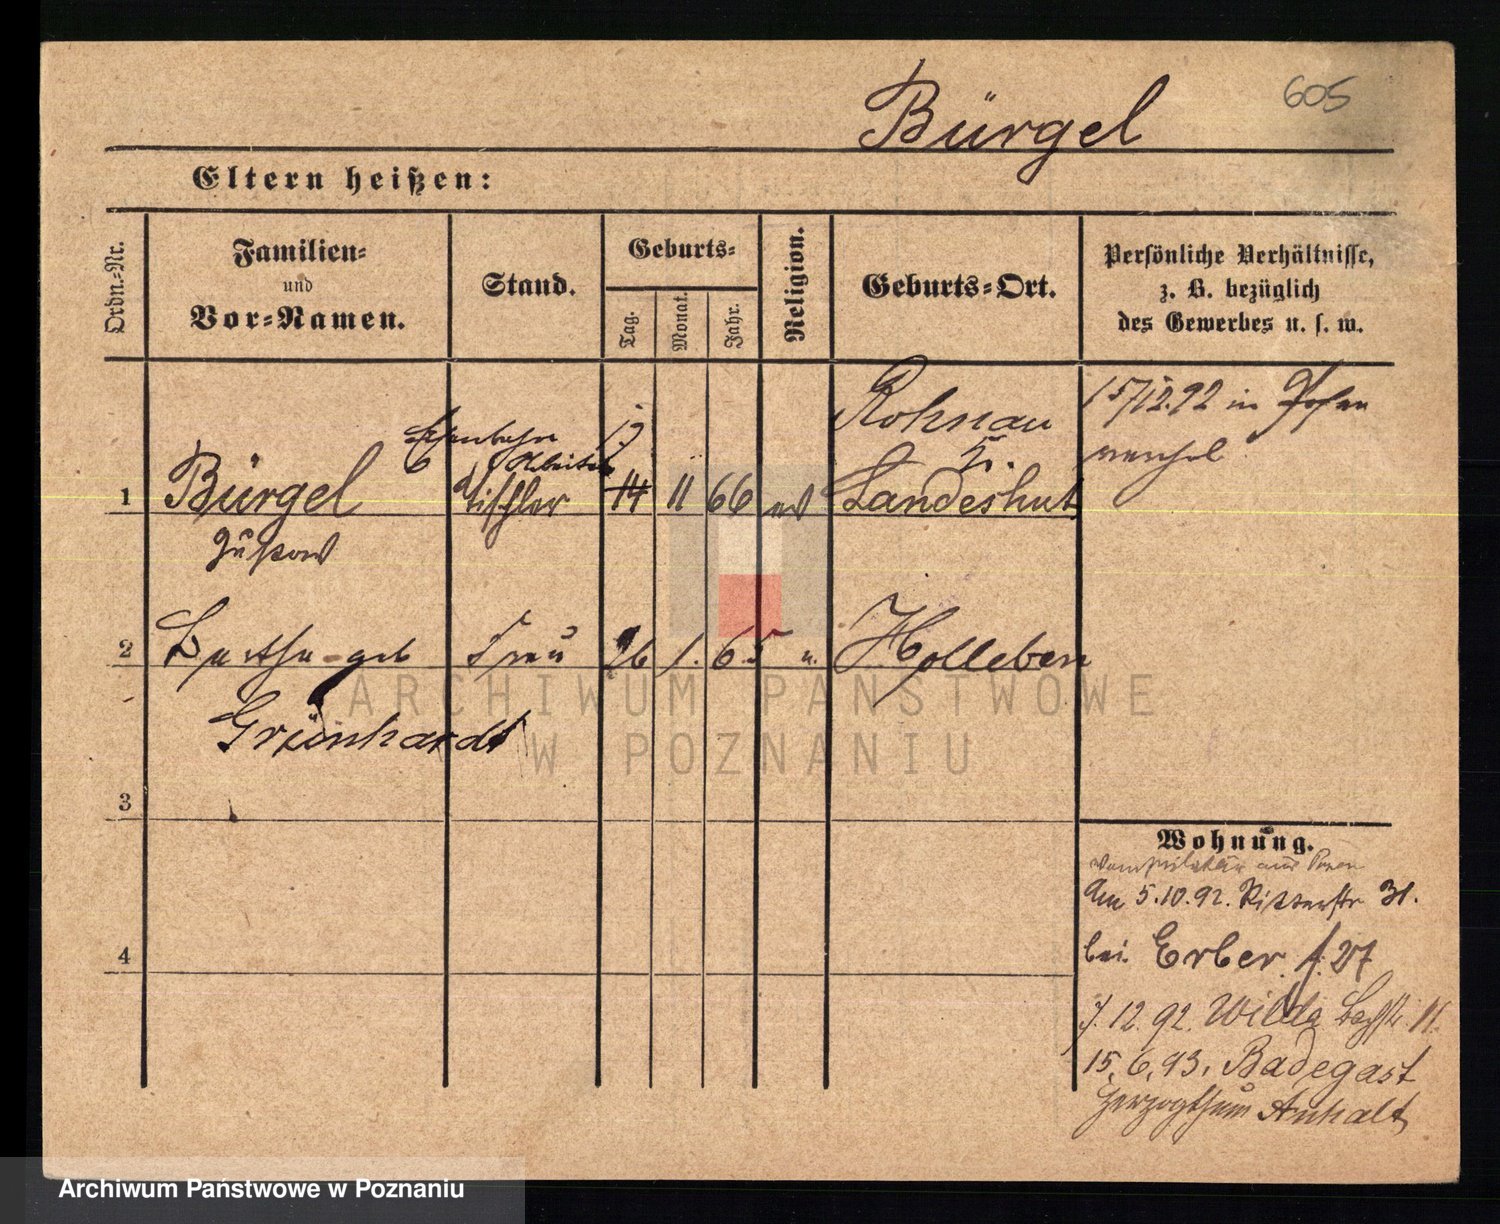 605
Bürgel
Eltern heißen:
Ordn.-Nr.
Familien-
und
Vor-Namen.
Stand.
Geburts-
Tag.
Monat.
Jahr.
Religion.
Geburts-Ort.
Persönliche Verhältnisse,
z. B. bezüglich
des Gewerbes u. s. w.
Eisenbahn
Arbeiter
1 Bürgel Tischler 14 11 66 ev Rohnau
Kr.
Landeshut
Gustav
15/12.92 in Posen
2 Bertha geb Frau 26 1. 65 Holleben
Grünhardt
3
4
Wohnung.
vom Militär aus Posen
Am 5.10.92. Ritterstr 31.
bei Erber f. 27
7.12.92. Wilda Bachstr. 11.
15.6.93. Radegast
Herzogthum Anhalt
ARCHIWUM PAŃSTWOWE
W POZNANIU
Archiwum Państwowe w Poznaniu